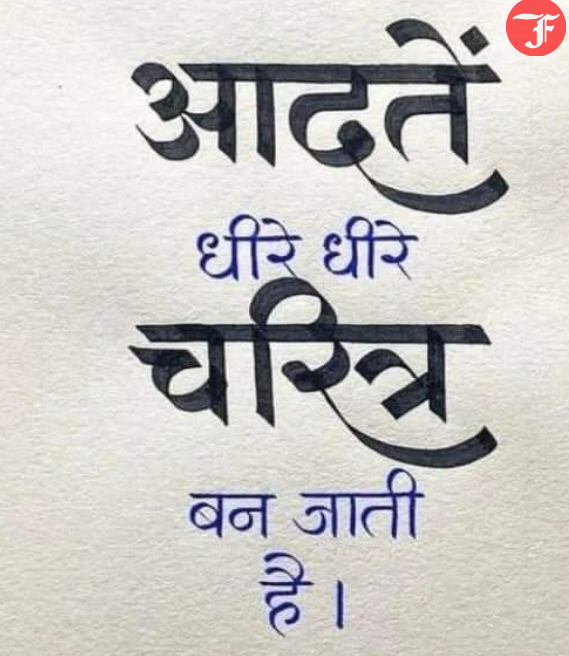 आदतें
धीरे धीरे
चरित्र
बन जाती
है।